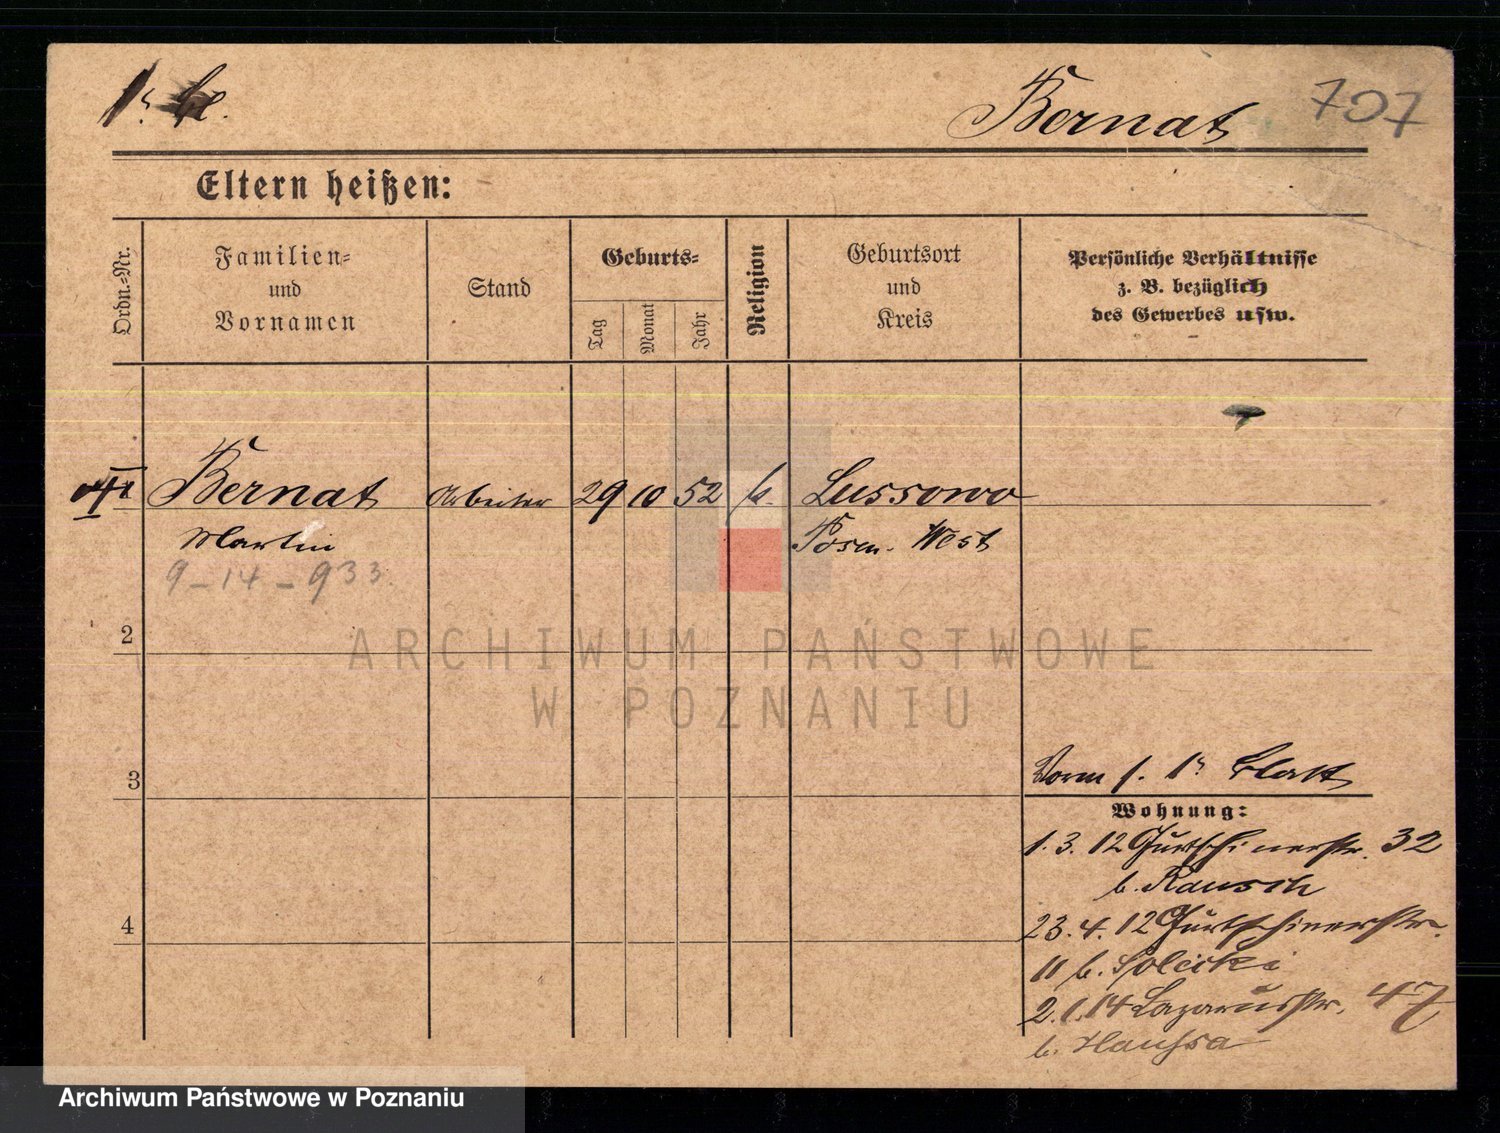 Bernat 707
Eltern heißen:
Ordn.-Nr.
Familien-
und
Vornamen
Stand
Geburts-
Tag
Monat
Jahr
Religion
Geburtsort
und
Kreis
Persönliche Verhältnisse
z. B. bezüglich
des Gewerbes usw.
Bernat Arbeiter 29 10 52 k. Lussowo
Martin Posen-West
9-14-933
2
ARCHIWUM PAŃSTWOWE
W POZNANIU
3
Vorm s. 1s Blatt
Wohnung:
1. 3. 12 Gurtschinerstr. 32
b. Rausch
4
23. 4. 12 Gurtschinerstr.
11 b.
2. 1. 14 Lazarusstr. 47
b.
Archiwum Państwowe w Poznaniu